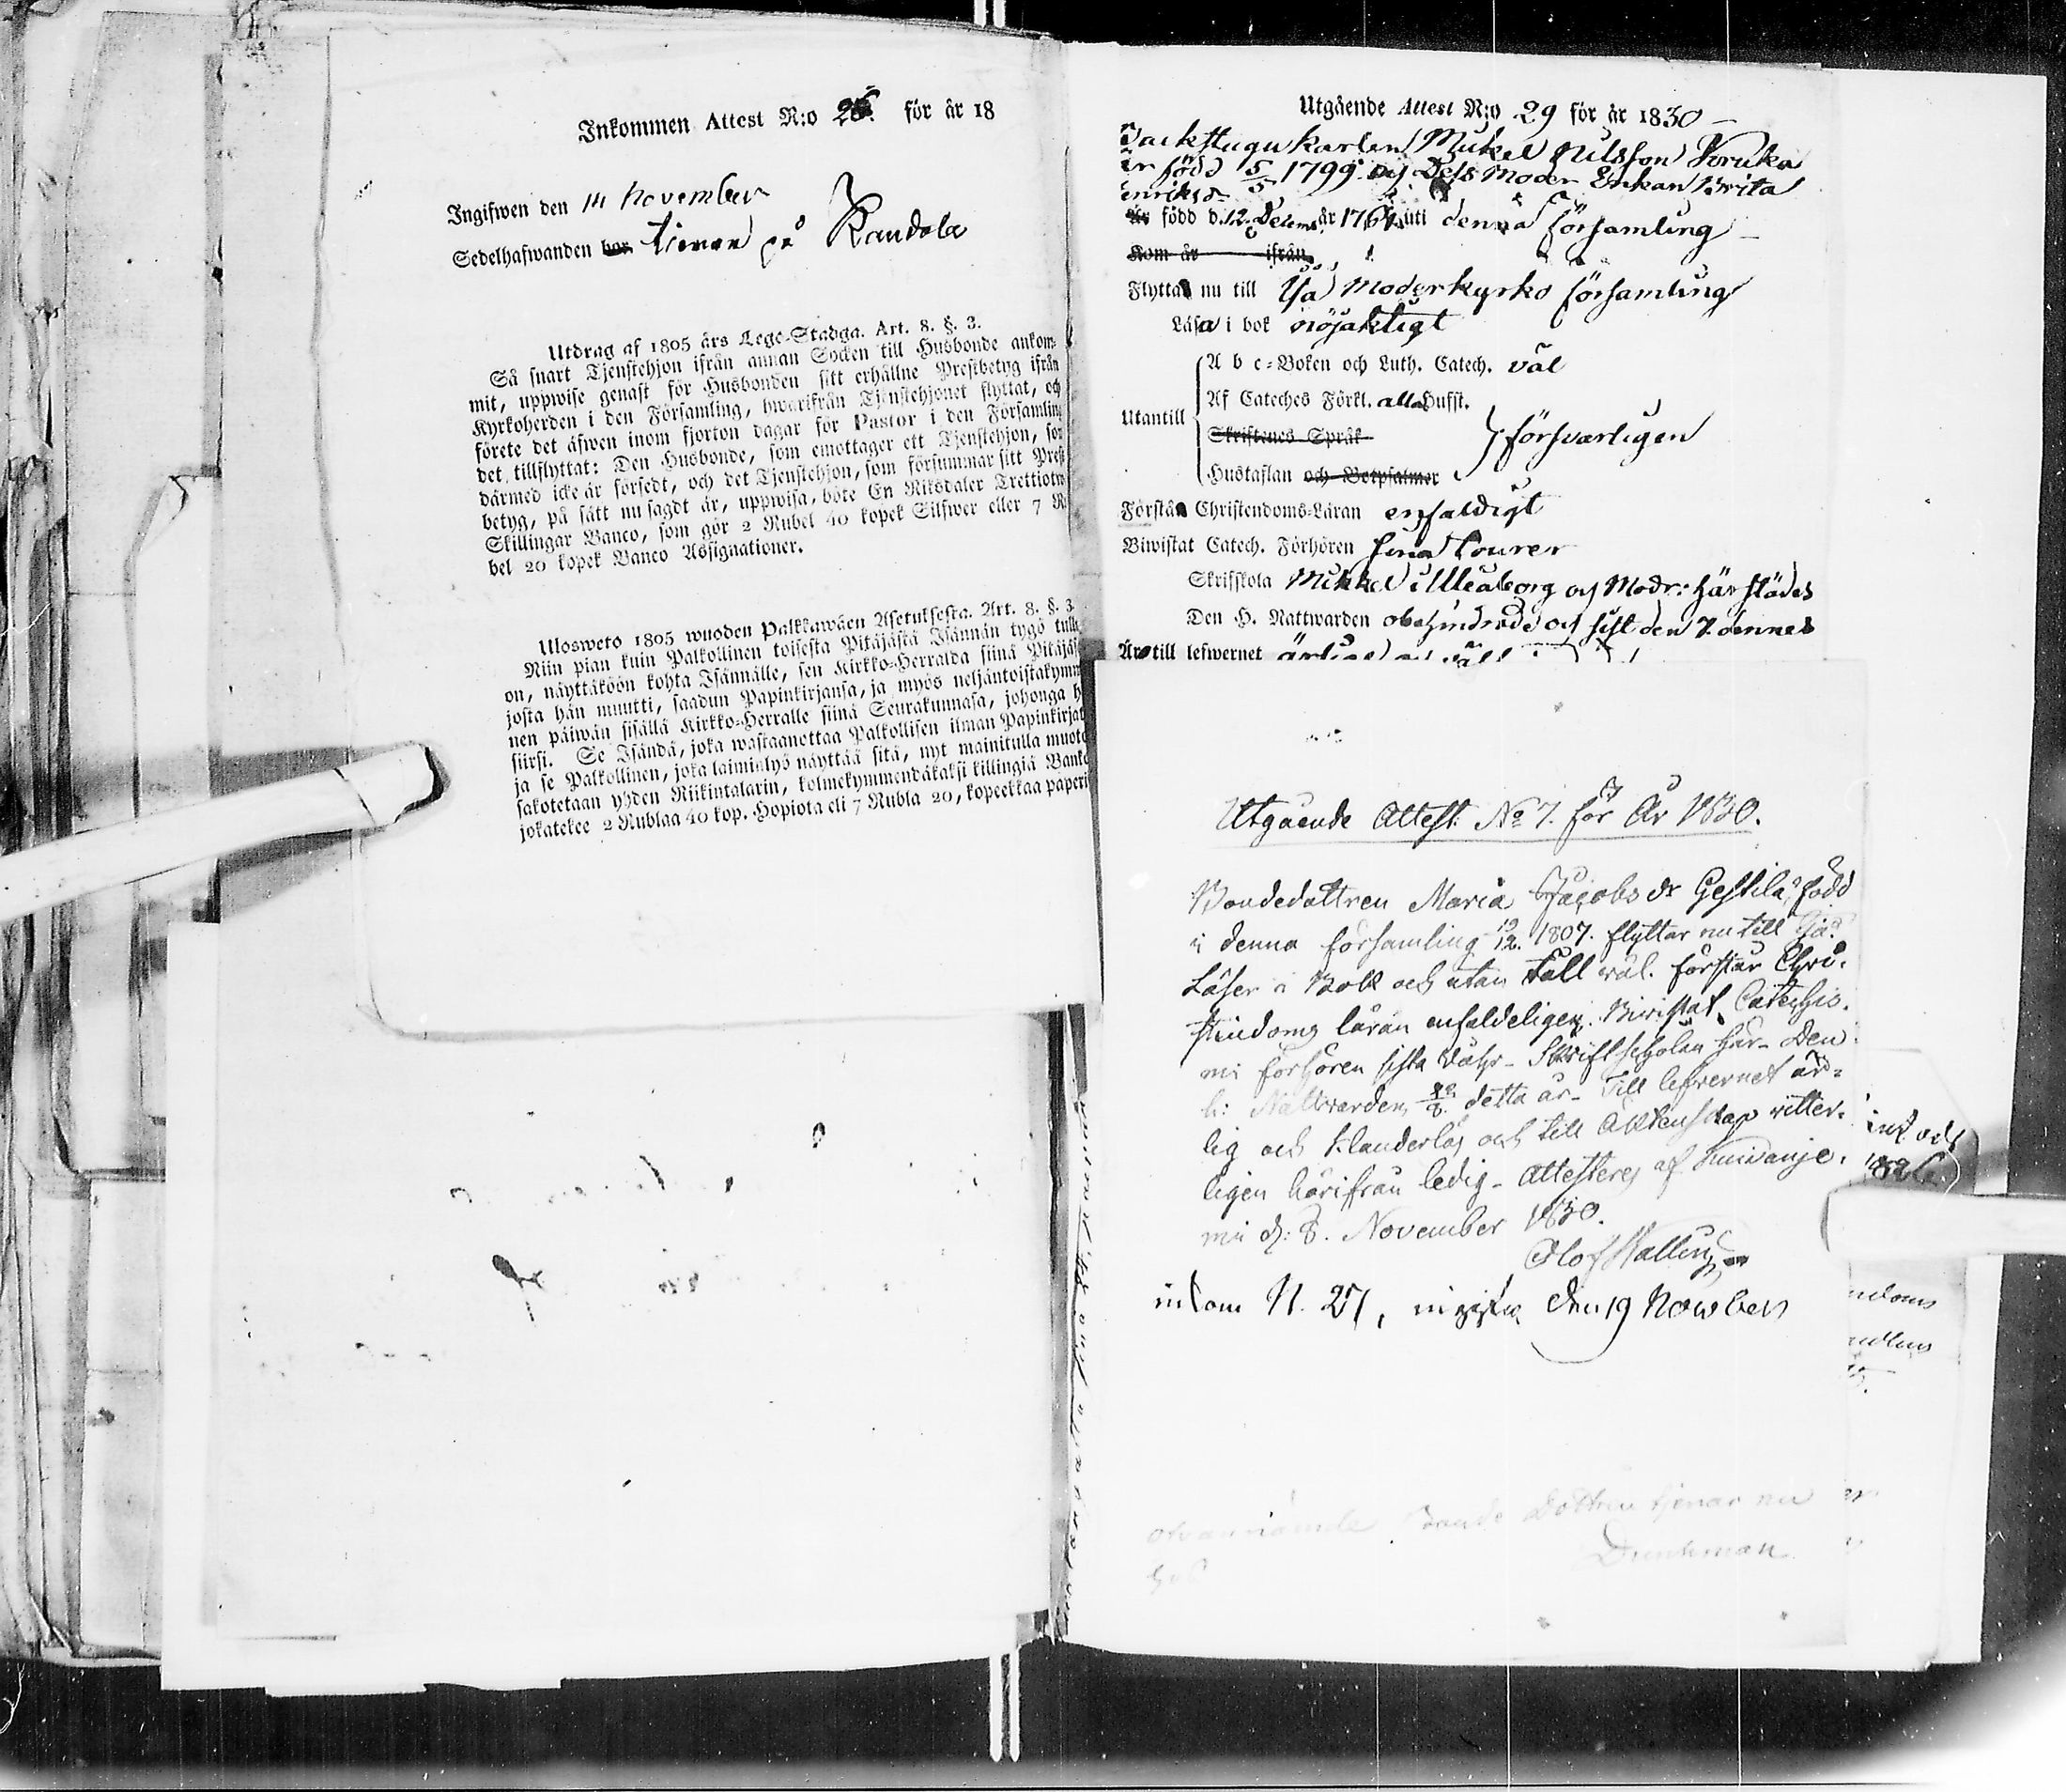 Inkommen Attest N:o 26. för år 18
Ingifwen den 14 November
Sedelhafwanden bor tienar på Randola
Utdrag af 1805 års Lego-Stadga. Art. 8. §. 3.
Så snart Tjenstehjon ifrån annan Socken till Husbonde ankom-
mit, uppwise genast för Husbonden sitt erhållne Prestbetyg ifrån
Kyrkoherden i den Församling, hwarifrån Tjenstehjonet flyttat, och
förete det äfwen inom fjorton dagar för Pastor i den Församling
det tillflyttat: Den Husbonde, som emottager ett Tjenstehjon, som
därmed icke är försedt, och det Tjenstehjon, som försummar sitt Prest
betyg, på sätt nu sagdt är, uppwisa, böte En Riksdaler Trettiotw
Skillingar Banco, som gör 2 Rubel 40 kopek Silfwer eller 7 R
bel 20 kopek Banco Assignationer.
Ulosweto 1805 wuoden Palkkawäen Asetuksesta. Art. 8. §. 3
Niin pian kuin Palkollinen toisesta Pitäjästä Isännän tygö tullu
on, näyttäköön kohta Isännälle, sen Kirkko-Herralda siinä Pitäjäs
josta hän muutti, saadun Papinkirjansa, ja myös neljäntoistakymm
nen päiwän sisällä Kirkko-Herralle siinä Seurakunnasa, johonga h
siirsi. Se Isändä, joka wastaanottaa Palkollisen ilman Papinkirjat
ja se Palkollinen, joka laiminlyö näyttää sitä, nyt mainitulla muoto
sakotetaan yhden Riikintalarin, kolmekymmendäkaksi killingiä Banko
jokatekee 2 Rublaa 40 kop. Hopiota eli 7 Rubla 20, kopeekkaa paperi
Utgående Attest N:o 29 för år 1830
Backstugukarlen Mickel Nilsson Kruka
är född 5/5 1799 och Dess Moder Enkan Brita
Henriksd
är född d. 12 Decemb år 1764 uti denna Församling
Kom år ifrån
Flytta nu till Ijå Moderkyrko församling
Läsa i bok nöjaktigt
Utantill
A b c-Boken och Luth. Catech. väl
Af Cateches Förkl. alla Hufst.
Skriftenes Språk
försvarligen
Hustaflan och Botpsalmer
Förstå Christendoms-Läran enfaldigt
Biwistat Catech. Förhören sina tourer
Skriffkola Mikkel i Uleåborg och Modr: härstädes
Den H. Nattwarden obehindrade och sist den 7. dennes
Äro till lefwernet
Utgående Attest No 7. för År 1830.
Bondedottren Maria Jacobs dr Gestilä, född
i denna församling 19/12. 1807. flyttar nu till Ijå.
Läser i Bok och utan till wäl. förstår Chri-
stendoms läran enfaldeligen. Biwistat Catechis-
mi förhören sista Vahr. Skriftscholan här. Den
h: Nattwarden 22/8. detta år. Till lefwernet är-
lig och klanderlös och till Äktenskap witter-
ligen härifrån ledig. Attesteres af Kuiwanje-
mi d: 8. November 1830.
Olof Walling
inkom N. 27, ingifven den 19 November
ofvannämde Bonde Dottren tjenar nu
hos Dunckman